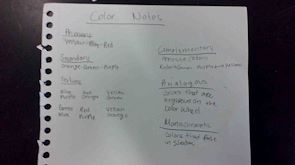 Color Notes
Primary
Yellow-Blue-Red
Secondary
Orange-Green-Purple
Blue Red Yellow
Purple Orange Green
Green Red Yellow
Blue Purple Orange
Complementary
Opposite colors
Analogous
Colors that are
neighbors on the
color wheel
Monochromatic
Colors that
in shades